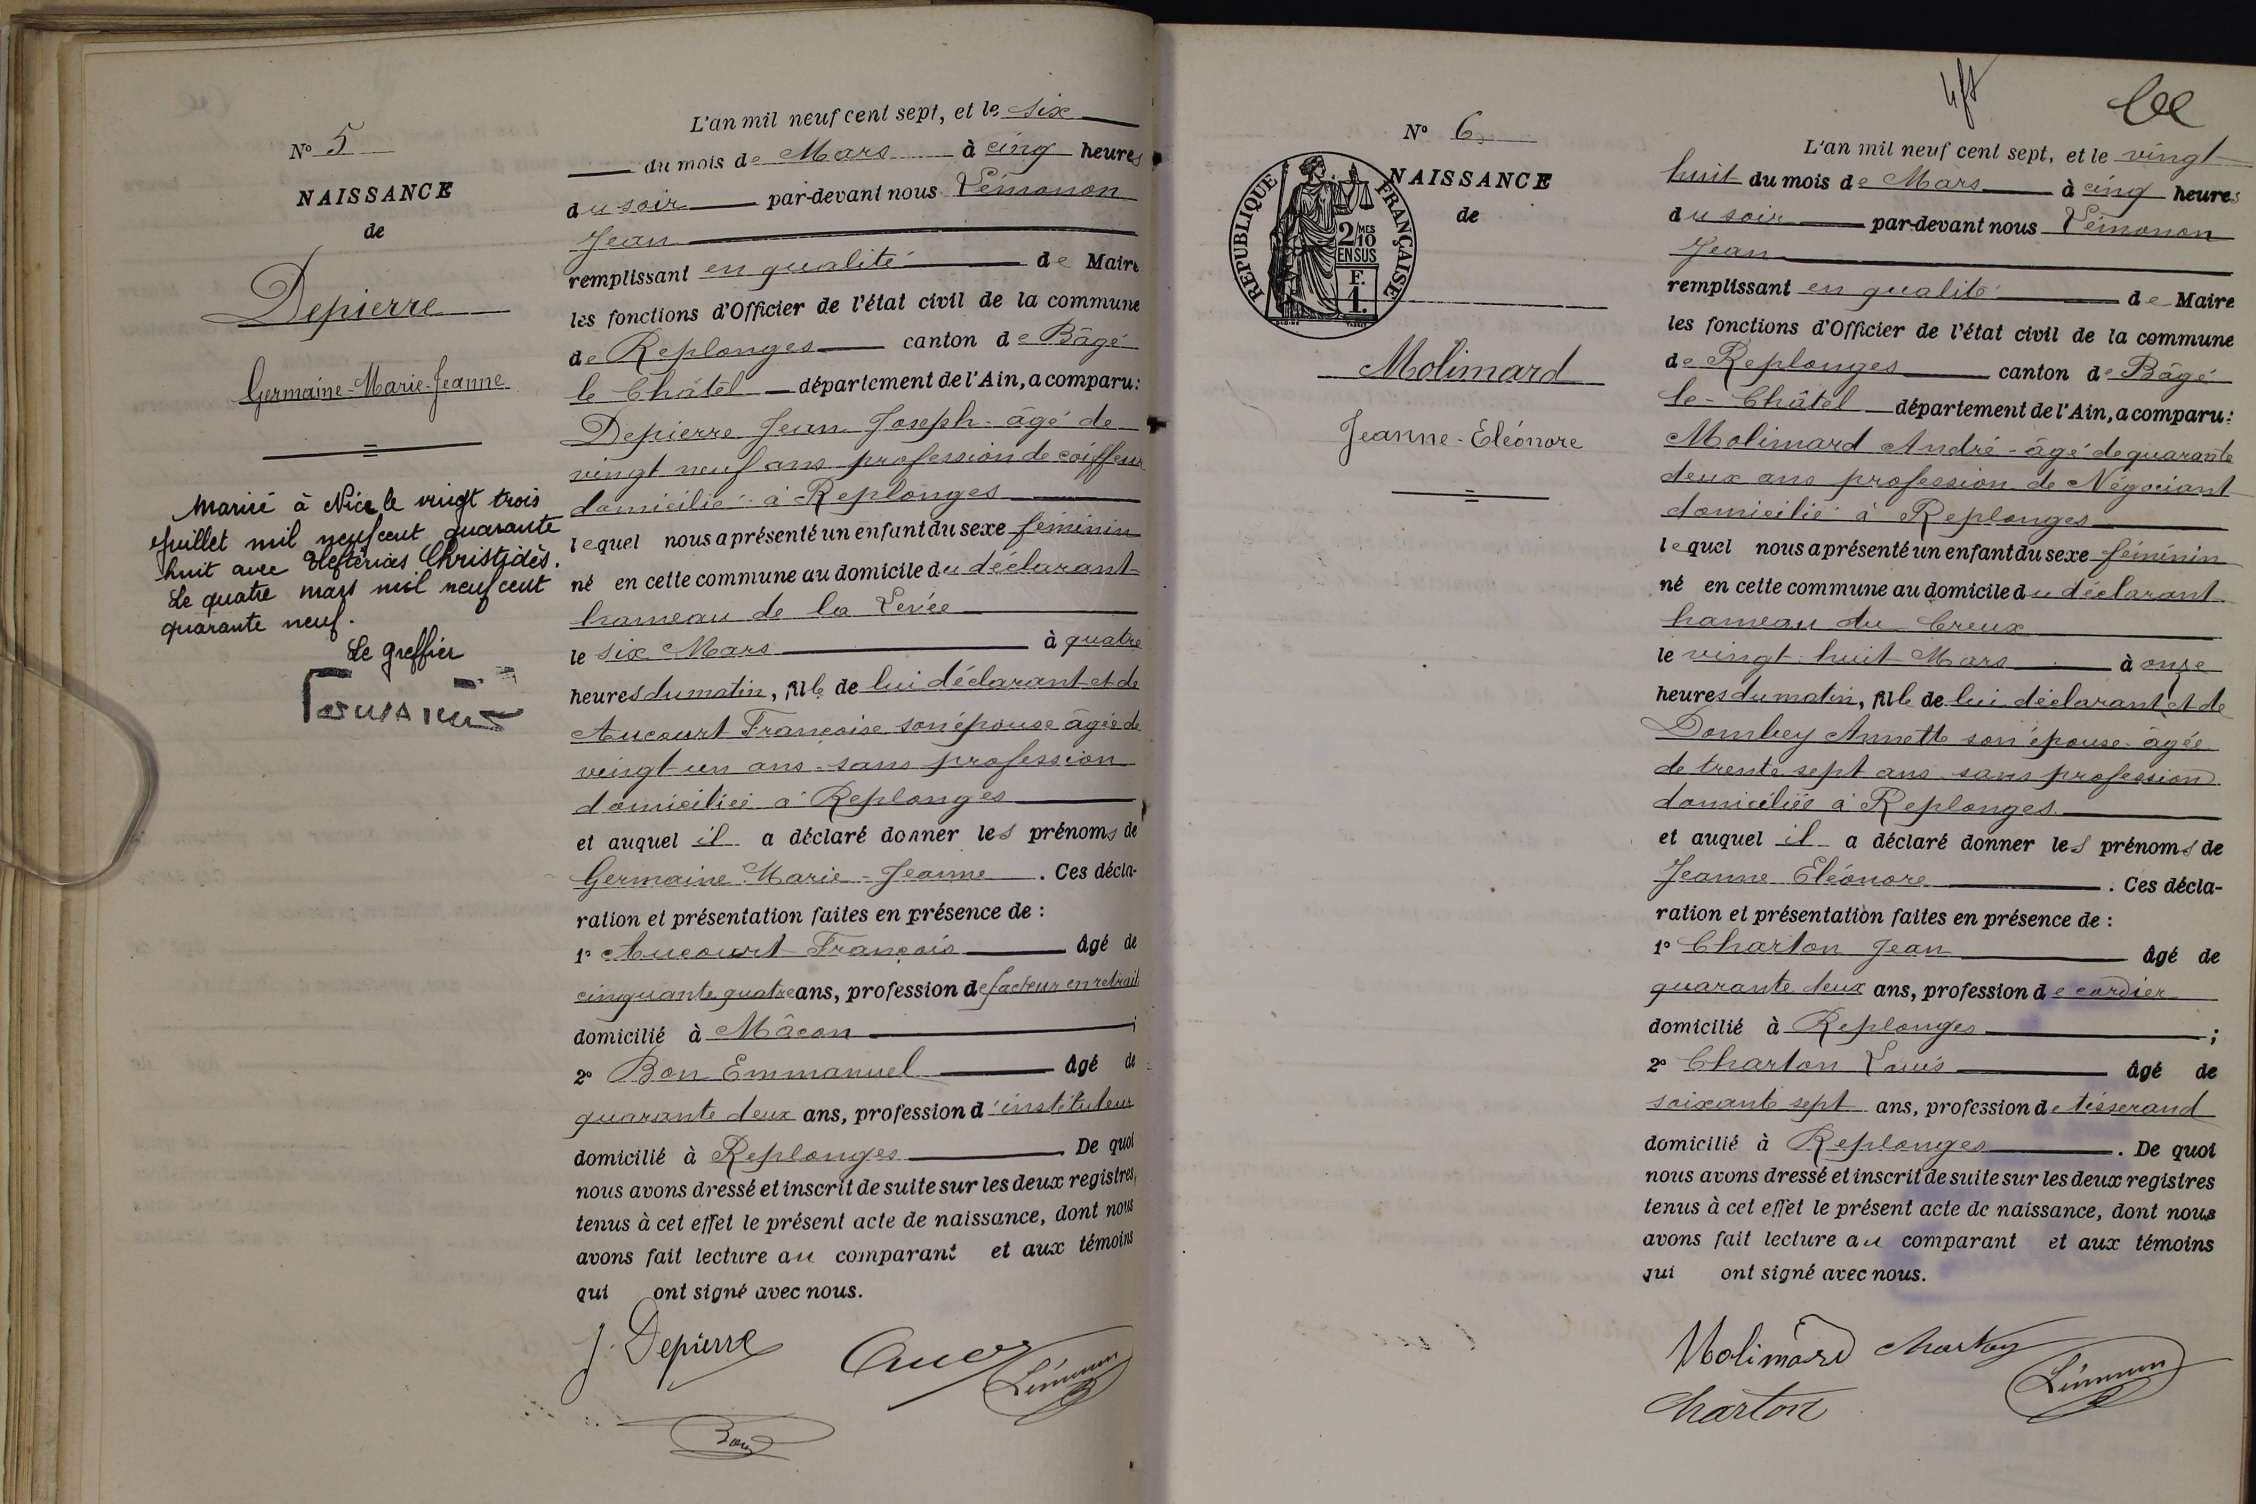 N° 5
NAISSANCE
de
Depierre
Germaine-Marie-Jeanne
Mariée à Nice le vingt trois
juillet mil neuf cent quarante
huit avec Elefterias Christidès.
Le quatre mars mil neuf cent
quarante neuf.
Le greffier
L'an mil neuf cent sept, et le six
du mois de Mars à cinq heures
du soir par-devant nous Lémonon
Jean
remplissant en qualité de Maire
les fonctions d'Officier de l'état civil de la commune
de Replonges canton de Bâgé
le Châtel département de l'Ain, a comparu:
Depierre Jean Joseph âgé de
vingt neuf ans profession de coiffeur
domicilié à Replonges
lequel nous a présenté un enfant du sexe féminin
né en cette commune au domicile du déclarant
hameau de la Levée
le six Mars à quatre
heures du matin, fille de lui déclarant et de
Aucourt Françoise son épouse âgée de
vingt un ans sans profession
domiciliée à Replonges
et auquel il a déclaré donner les prénoms de
Germaine Marie-Jeanne. Ces décla-
ration et présentation faites en présence de :
1° Aucourt François âgé de
cinquante quatre ans, profession de facteur en retrait
domicilié à Mâcon ;
2° Bon Emmanuel âgé de
quarante deux ans, profession d'instituteur
domicilié à Replonges De quoi
nous avons dressé et inscrit de suite sur les deux registres,
tenus à cet effet le présent acte de naissance, dont nous
avons fait lecture au comparant et aux témoins
qui ont signé avec nous.
J. Depierre
Lémonon
Bon
N° 6
RÉPUBLIQUE FRANÇAISE
2/10 MES
EN SUS
F.
1.
NAISSANCE
de
Molimard
Jeanne-Eléonore
L'an mil neuf cent sept, et le vingt
huit du mois de Mars à cinq heures
du soir par-devant nous Lémonon
Jean
remplissant en qualité de Maire
les fonctions d'Officier de l'état civil de la commune
de Replonges canton de Bâgé
le-Châtel département de l'Ain, a comparu:
Molimard André-âgé de quarante
deux ans profession de Négociant
domicilié à Replonges
lequel nous a présenté un enfant du sexe féminin
né en cette commune au domicile du déclarant
hameau du Creux
le vingt huit Mars à onze
heures du matin, fille de lui déclarant et de
Dombey Annette son épouse âgée
de trente sept ans sans profession
domiciliée à Replonges
et auquel il a déclaré donner les prénoms de
Jeanne Eléonore. Ces décla-
ration et présentation faites en présence de :
1° Charton Jean âgé de
quarante deux ans, profession de cordier
domicilié à Replonges ;
2° Charton Louis âgé de
soixante sept ans, profession de tisserand
domicilié à Replonges. De quoi
nous avons dressé et inscrit de suite sur les deux registres
tenus à cet effet le présent acte de naissance, dont nous
avons fait lecture au comparant et aux témoins
qui ont signé avec nous.
Molimard Charton
Lémonon
Charton